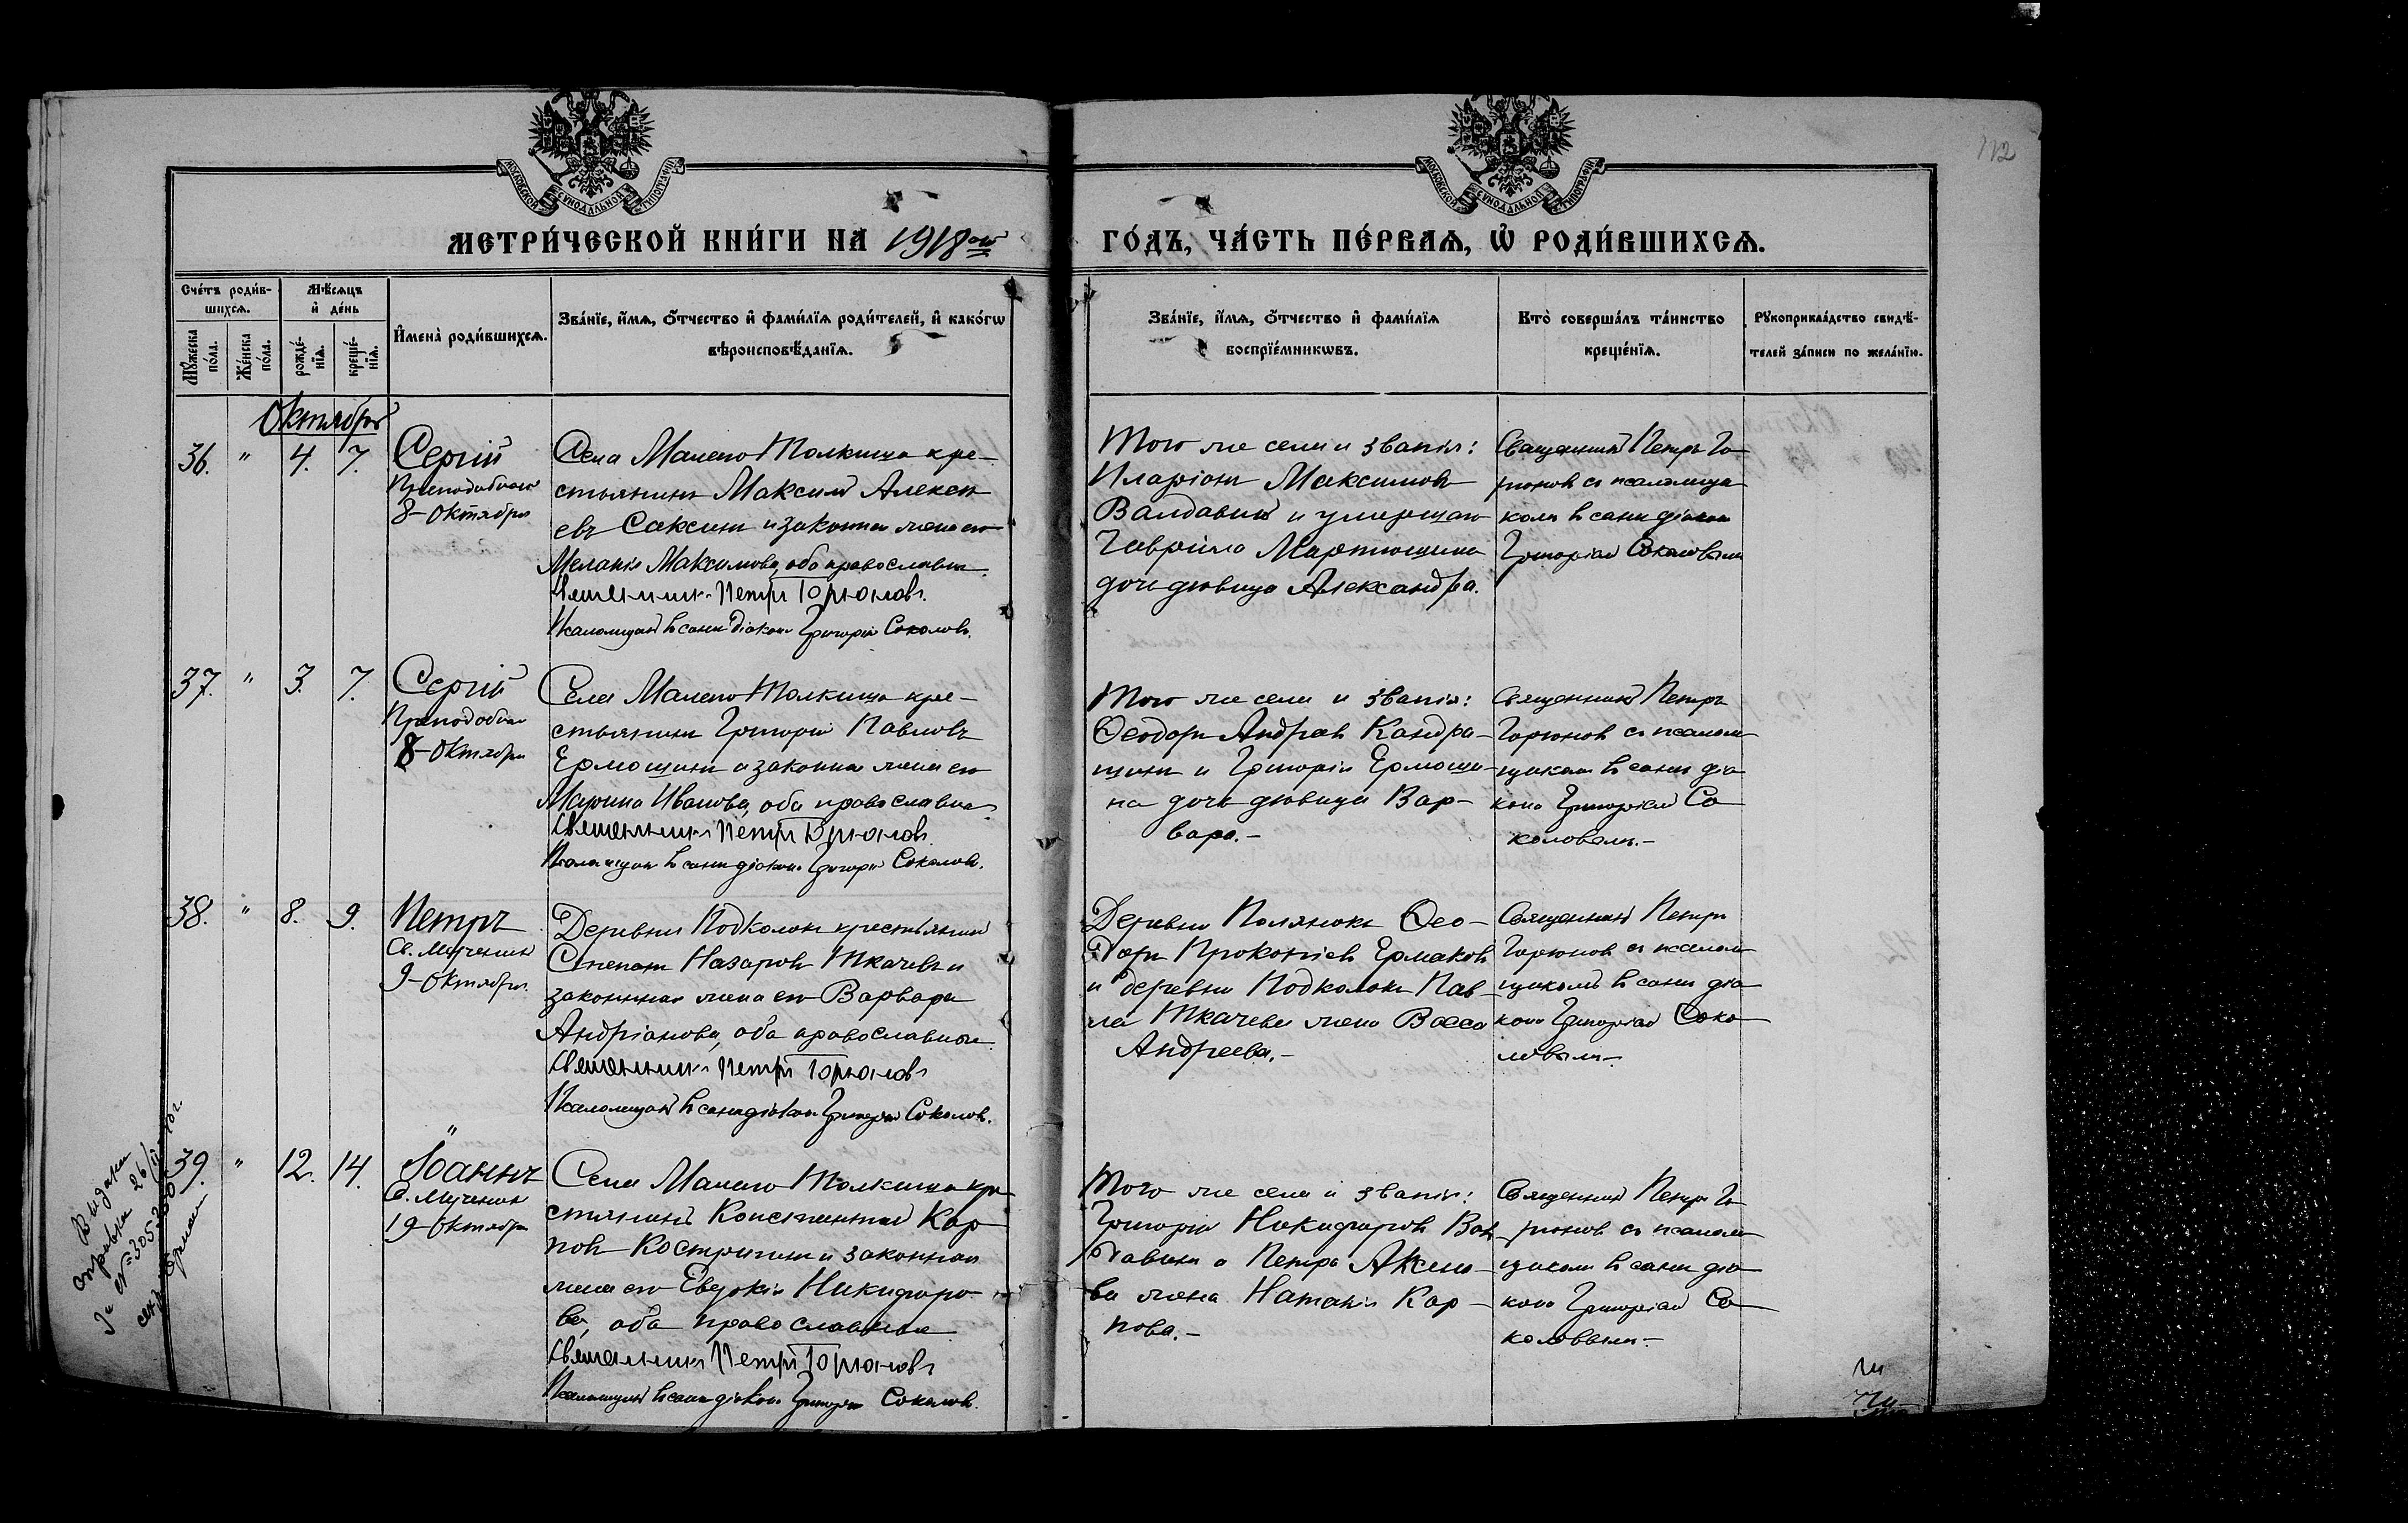 112
МОСКОВСКОЙ СѴНОДАЛЬНОЙ ТИПОГРАФІИ
МОСКОВСКОЙ СѴНОДАЛЬНОЙ ТИПОГРАФІИ
МЕТРИ́ЧЕСКОЙ КНИ́ГИ НА 1918 ой ГО́ДЪ, ЧА́СТЬ ПЕ́РВАѦ, Ѡ҆ РОДИ́ВШИХСѦ.
Сче́тъ роди́в-
шихсѧ.
Мꙋ́жеска по́ла.
Же́нска по́ла.
Мѣ́сѧцъ
и҆ де́нь
рожде́-
нїѧ.
креще́-
нїѧ.
И҆мена̀ роди́вшихсѧ.
Зва́нїе, и҆́мѧ, ѻ҆́тчество и҆ фами́лїѧ роди́телей, и҆ како́гѡ
вѣроисповѣ́данїѧ.
Зва́нїе, и҆́мѧ, ѻ҆́тчество и҆ фами́лїѧ
воспрїе́мникѡвъ.
Кто̀ соверша́лъ та́инство
креще́нїѧ.
Рꙋкоприкла́дство свидѣ́-
телей за́писи по жела́нїю.
Октябрь
36. " 4. 7.
Сергій
Преподобнаго
8-Октября
Села Малаго Толкиша кре-
стьянинъ Максимъ Алексѣ
евъ Саксинъ и законная жена его
Меланія Максимова, оба православные.
Священникъ Петръ Горюновъ.
Псаломщикъ въ санѣ діакона Григорій Соколовъ.
Того же села и званія:
Иларіонъ Максимовъ
Валдавинъ и умершаго
Гавріила Мартюшина
дочь дѣвица Александра.
Священникъ Петръ Го
рюновъ съ псаломщи
комъ въ санѣ діакона
Григоріемъ Соколовымъ
37. " 3. 7.
Сергій
Преподобнаго
8-Октября
Села Малаго Толкиша кре-
стьянинъ Григорій Павловъ
Ермошинъ и законная жена его
Марина Иванова, оба православные.
Священникъ Петръ Горюновъ.
Псаломщикъ въ санѣ діакона Григорій Соколовъ.
Того же села и званія:
Ѳеодоръ Андреевъ Кандра-
шинъ и Григорія Ермоши-
на дочь дѣвица Вар-
вара.-
Священникъ Петръ
Горюновъ съ псалом-
щикомъ въ санѣ діа
кона Григоріемъ Со
коловымъ.-
38. " 8. 9.
Петръ
Св. Мученика
9-Октября.
Деревни Подколокъ крестьянинъ
Степанъ Назаровъ Ткачевъ и
законная жена его Варвара
Андріанова, оба православные.
Священникъ Петръ Горюновъ
Псаломщикъ въ санѣ діакона Григорій Соколовъ.
Деревни Полянокъ Ѳео-
доръ Прокопіевъ Ермаковъ
и деревни Подколокъ Пав-
ла Ткачева жена Васса
Андреева.-
Священникъ Петръ
Горюновъ съ псалом
щикомъ въ санѣ діа
кона Григоріемъ Соко
ловымъ.-
39. " 12. 14.
Іоаннъ
С. Мученика
19-Октября
Села Малаго Толкиша кре
стьянинъ Константинъ Кар
повъ Костригинъ и законная
жена его Евдокія Никифоро
ва, оба православные.
Священникъ Петръ Горюновъ
Псаломщикъ въ санѣ діакона Григорій Соколовъ.
Того же села и званія:
Григорій Никифоровъ Вал
давинъ и Петра Аксено-
ва жена Наталія Кар-
пова.-
Священникъ Петръ Го
рюновъ съ псалом
щикомъ въ санѣ діа
кона Григоріемъ Со
коловымъ.-
Выдана
справка 26/
За №